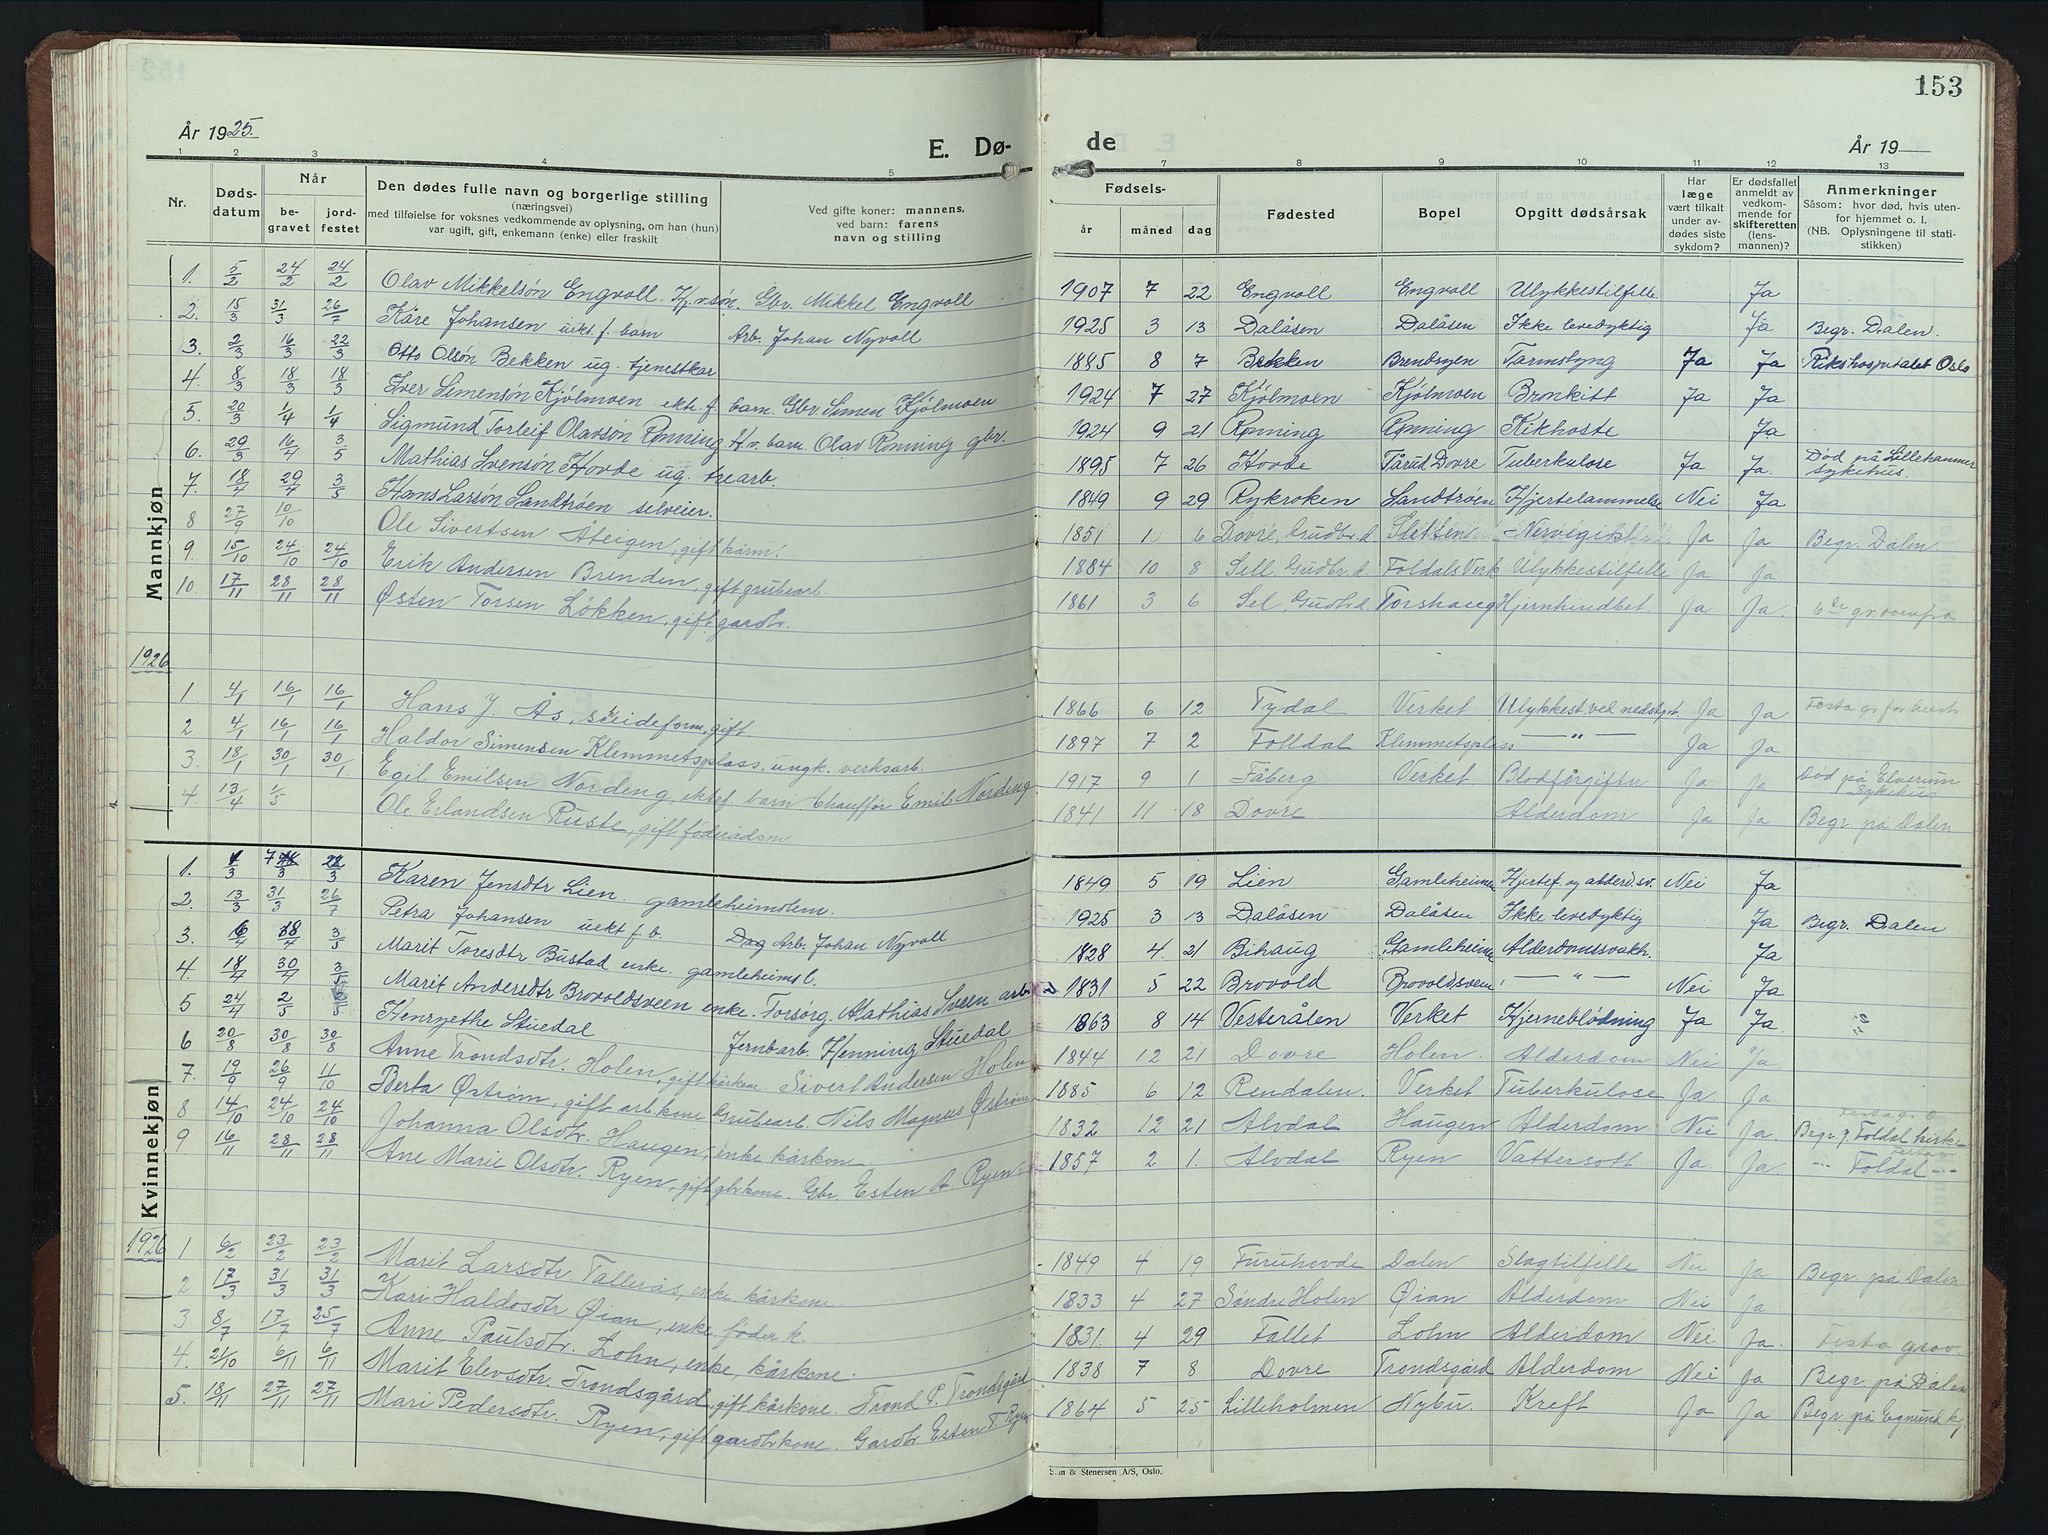 153
År 1925.
E. Dø-
de
År 19
1 2 3 4 5 7 8 9 10 11 12 13
Nr. Dødsdatum Når begravet jordfestet Den dødes fulle navn og borgerlige stilling (næringsvei) med tilføielse for voksnes vedkommende av oplysning, om han (hun) var ugift, gift, enkemann (enke) eller fraskilt Ved gifte koner: mannens, ved barn: farens navn og stilling Fødsels- år måned dag Fødested Bopel Opgitt dødsårsak Har læge vært tilkalt under avdødes siste sykdom? Er dødsfallet anmeldt av vedkommende for skifteretten (lensmannen)? Anmerkninger Såsom: hvor død, hvis utenfor hjemmet o. l. (NB. Oplysningene til statistikken)
Mannkjøn
1. 5/2 24/2 24/2 Olav Mikkelsøn Engvoll. Gbr. Mikkel Engvoll 1907 7 22 Engvoll Engvoll Ulykkestilfelle Ja
2. 15/3 31/3 26/7 Kåre Johansen uekt. f. barn Arb. Johan Nyvoll 1925 3 13 Dalåsen Dalåsen Ikke levedyktig Ja Begr. Dalen.
3. 2/3 16/3 22/3 Otto Olsøn Bekken ug. tjenestkar 7 Bekken Tarmslyng Ja Ja Rikshospitalet Oslo
4. 8/3 18/3 18/3 Iver Simensøn Kjølmoen ekt. f. barn. Gbr. Simen Kjølmoen 1924 7 27 Kjølmoen Kjølmoen Bronkitt Ja Ja
5. 20/3 1/4 1/4 Sigmund Torleif Olavsøn Rønning, barn. Olav Rønning gbr. 1924 9 21 Rønning Rønning Kikhoste Ja
6. 29/3 16/4 3/5 Mathias Svensøn Hovde ug. trearb. 1895 7 26 Hovde Dovre Tuberkulose Ja Ja. Død på Lillehammer sykehus.
7. 18/4 29/4 3/5 Hans Larsøn Sandtrøen selveier. 1849 9 29 Rykroken Sandtrøen Hjertelammelse Nei Ja
8 27/9 10/10 Ole Sivertsen Åteigen, gift kårm. 1851 6 Dovre, Gudbr.d. Sletten Ja Ja Begr. Dalen
9. 15/10 24/10 24/10 Erik Andersen Brenden, gift grubearb. 1884 10 8 Sell, Gudbr.d. Foldals Verk Ulykkestilfelle Ja Ja
10. 17/11 28/11 28/11 Østen Torsen Løkken, gift gardbr. 1861 3 6 Sel, Gudbr.d. Torshaug Ja Ja.
1926
1 4/1 16/1 16/1 Hans J. Ås, skeideform. gift 1866 6 12 Tydal Verket Ulykkest. ved nedstyrt. Ja Ja
2. 4/1 16/1 16/1 Haldor Simensen Klemmetsplass, ungk. verksarb. 1897 7 2 Folldal Klemmetsplass — " — Ja Ja
3. 18/1 30/1 30/1 Egil Emilsen Nordeng, ektef. barn Chauffør Emil Nordeng 1917 9 1 Fåberg Verket Blodforgiftn. Ja Ja Død på Elverum Sykehus
4. 13/4 1/5 Ole Erlandsen Ruste, gift føderådsm. 1841 11 18 Dovre Alderdom Ja Ja Begr. på Dalen
Kvinnekjøn
1. 7 Karen Jensdtr Lien. gamleheimslem. 1849 5 19 Lien Gamleheimen Hjertef. og alderd.sv. Nei Ja
2. 13/3 31/3 26/7 Petra Johansen uekt f. b. Dag Arb. Johan Nyvoll 1925 3 13 Dalåsen Dalåsen Ikke levedyktig Ja Begr. Dalen
3. 3/5 Marit Toresdtr Bustad enke. gamleheimsl. 1828 4. 21 Bihaug Gamleheimen Alderdomssvakh. Ja
4. 18/4 30/4 3/5 Marit Andersdtr Brovoldsveen enke. Forsørg. Mathias Sveen arb. 1831 5 22 Brovold Brovoldsveen — " — Nei Ja
5 24/4 2/5 Henryethe Stuedal Jernbarb. Henning Stuedal 1863 8 14 Vesterålen Verket Hjerneblødning Ja Ja.
6 20/8 30/8 30/8 Anne Trondsdtr. Holen, gift kårkone Sivert Andersen Holen 1844 12 21 Dovre Holen. Alderdom Nei Ja.
7. 19/9 26/9 11/10 Berta Østrøm, gift arb.kone Grubearb. Nils Magnus Østrøm 1885 6 12 Rendalen. Verket Tuberkulose Ja. Ja
8 14/10 24/10 24/10 Johanna Olsdtr. Haugen, enke kårkone. 1832 12 21 Alvdal Haugen Alderdom Nei Ja. Begr. Foldal kirke
9 16/11 28/11 28/11 Ane Marie Olsdtr. Ryen, gift gbrkone. Gbr. Esten A. Ryen 1857 2 1. Alvdal Ryen Vattersott Ja Ja. — Foldal —
1926
1 6/2 23/2 23/2 Marit Larsdtr. Tallerås, enke kårkone 1849 4 19 Furuhovde Dalen Slagtilfelle Nei Ja Begr. på Dalen
2 17/3 31/3 31/3 Kari Haldosdtr Øian, enke, føder.k. 1833 4 27 Søndre Holen Øian Alderdom Nei Ja
3 8/7 17/7 25/7 Anne Paulsdtr. Lohn, enke, kårkone. 1831. 4 29 Fallet Lohn Alderdom Nei Ja.
4. 21/10 6/11 6/11 Marit Elevsdtr. Trondsgård, gift kårkone. Trond P. Trondsgård 1838 7 8 Dovre Trondsgård Alderdom Nei Ja Begr. på Dalen
5. 18/11 27/11 27/11 Mari Pedersdtr. Ryen, gift gardbrkone. Gardbr. Esten T. Ryen 1864 5 25 Lilleholmen Nybu. Kreft Ja Ja Begr. på Egnund k.
& Stenersen A/S, Oslo.